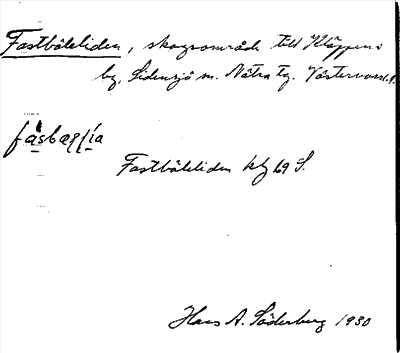 Fastbäleliden, skogsområde till Kläppen
by, Sidensjö sn. Nätra tg. Västernorrl. l.
Fastbäleliden kbl 69 S.
Hans A. Söderberg 1930